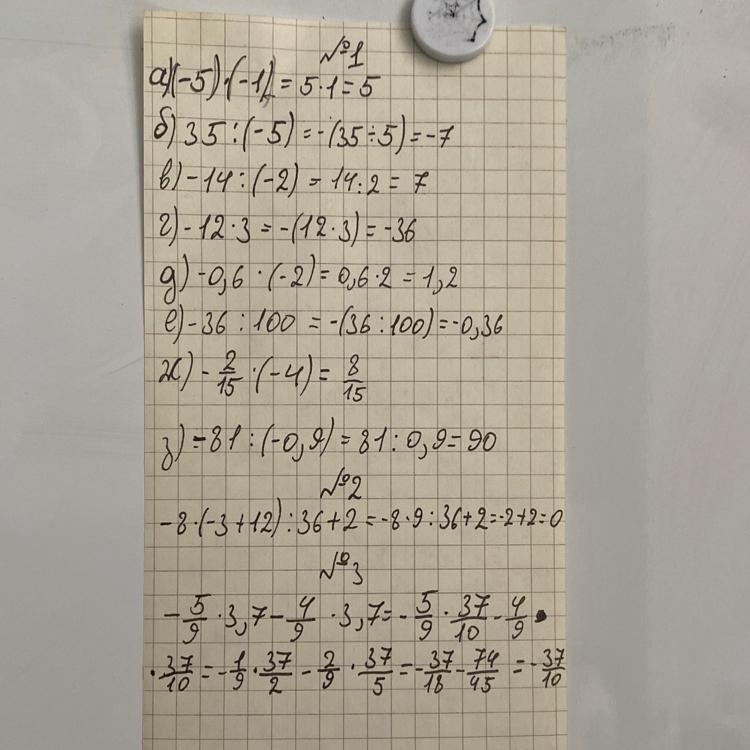 №1
а) (-5)·(-1) = 5·1 = 5
б) 35 : (-5) = -(35 ÷ 5) = -7
в) -14 : (-2) = 14 : 2 = 7
г) -12·3 = -(12·3) = -36
д) -0,6 · (-2) = 0,6·2 = 1,2
е) -36 : 100 = -(36 : 100) = -0,36
ж) - 2/15 · (-4) = 8/15
з) -81 : (-0,9) = 81 : 0,9 = 90
№2
-8·(-3+12) : 36+2 = -8·9 : 36+2 = -2+2 = 0
№3
- 5/9 · 3,7 - 4/9 · 3,7 = - 5/9 · 37/10 - 4/9 ·
· 37/10 = - 1/9 · 37/2 - 2/9 · 37/5 = - 37/18 - 74/45 = - 37/10